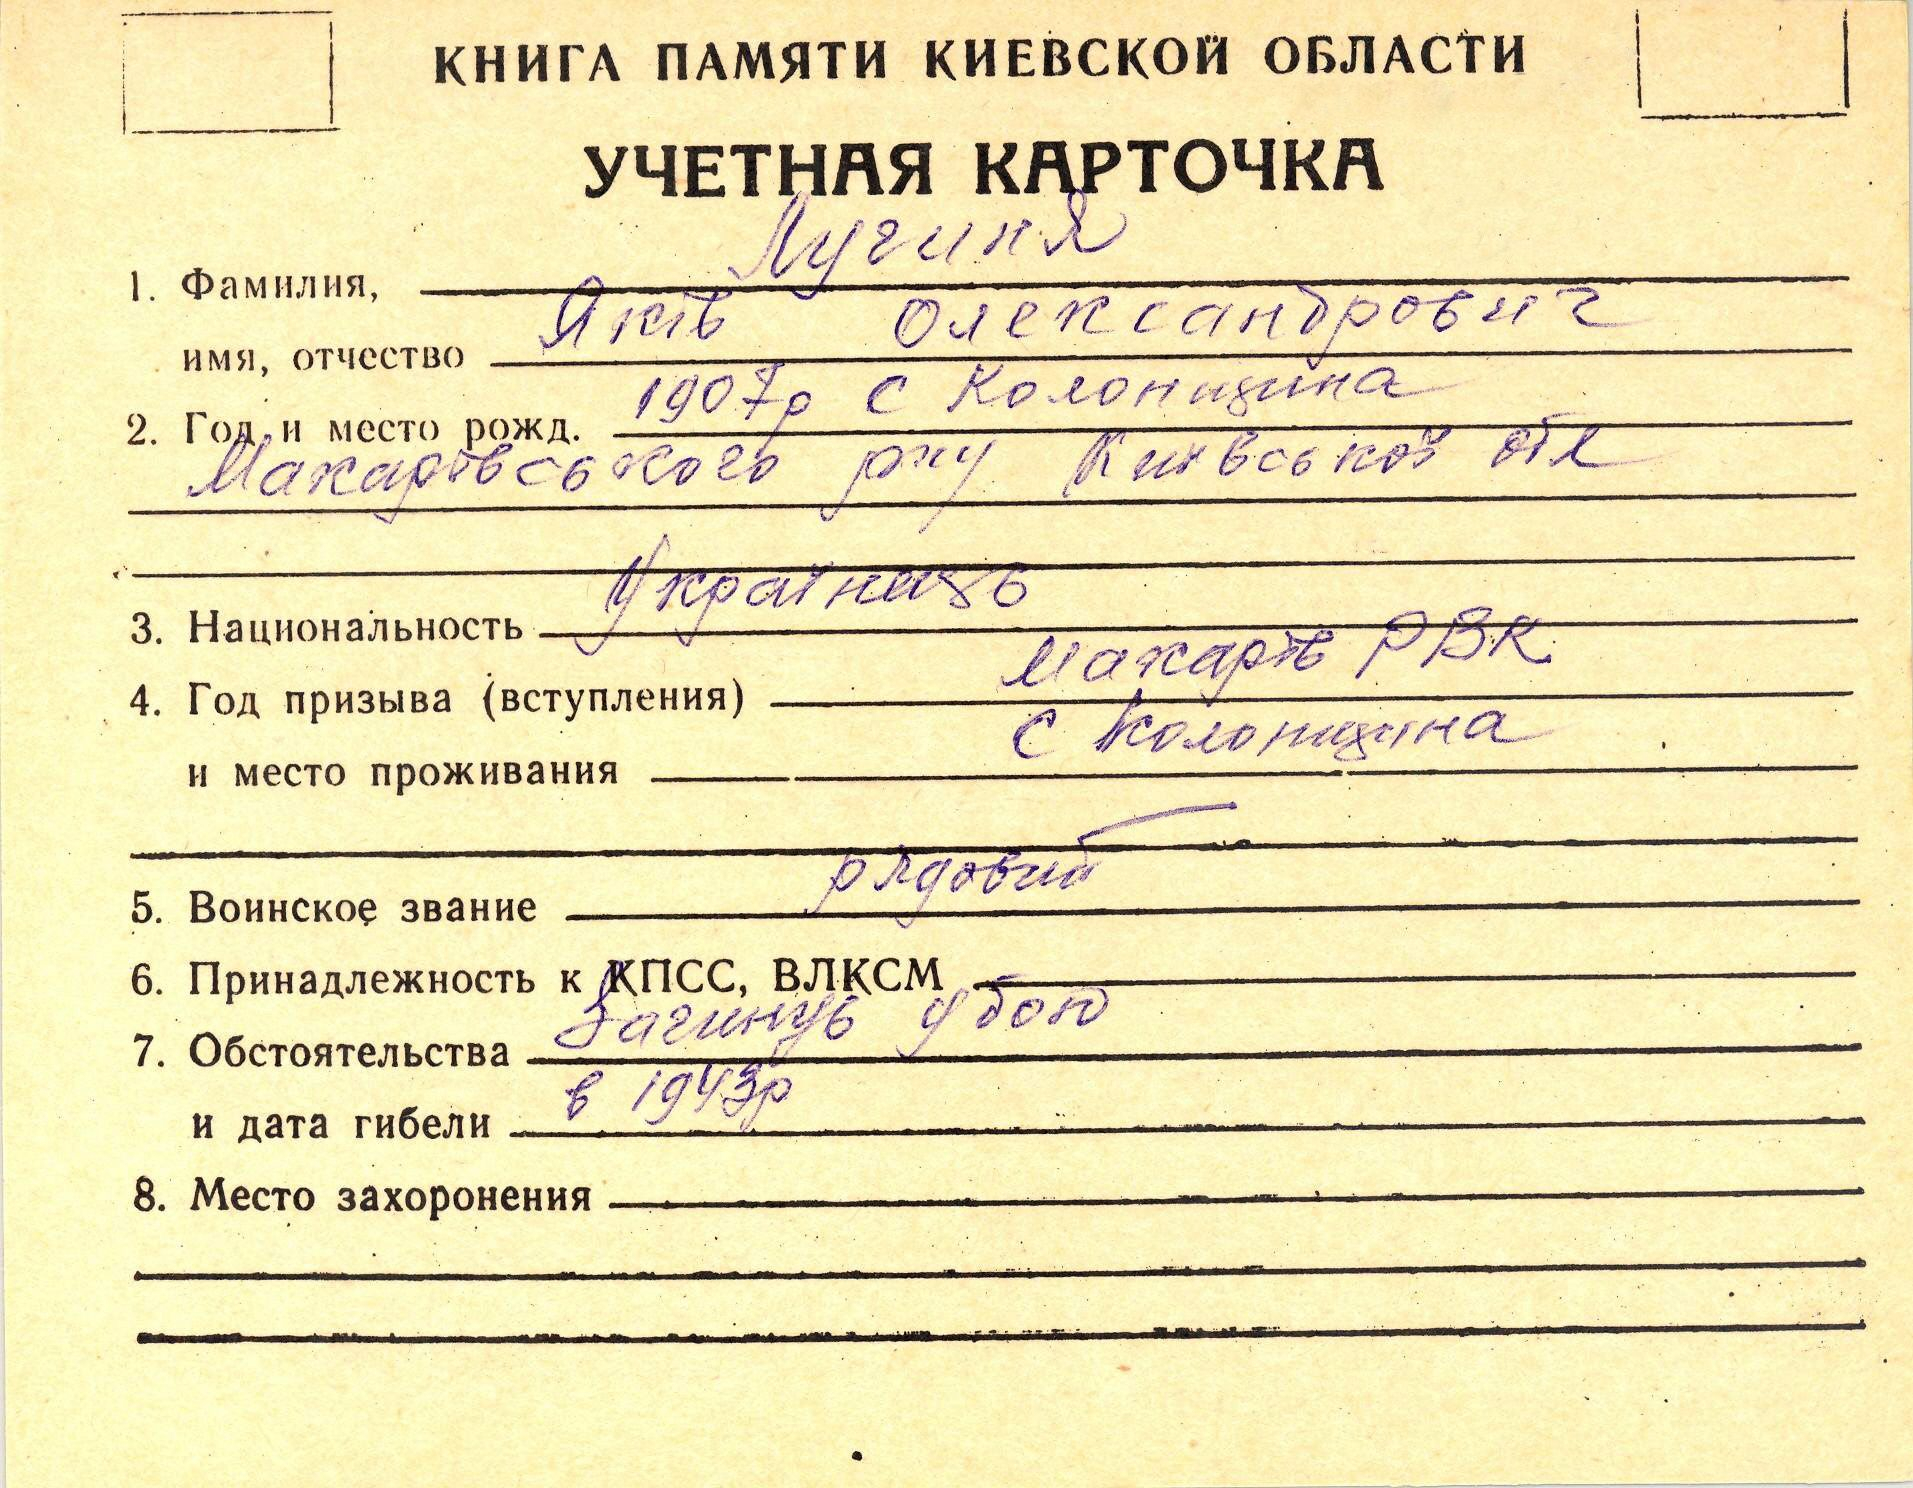 КНИГА ПАМЯТИ КИЕВСКОЙ ОБЛАСТИ
УЧЕТНАЯ КАРТОЧКА
1. Фамилия, Лугиня
имя, отчество Яків Олександрович
2. Год и место рожд. 1907р с Колонщина
Макарівського р-ну Київської обл
3. Национальность Українець
4. Год призыва (вступления) Макарів РВК
и место проживания с Колонщина
5. Воинское звание рядовий
6. Принадлежность к КПСС, ВЛКСМ
7. Обстоятельства Загинув у бою
и дата гибели в 1943р
8. Место захоронения